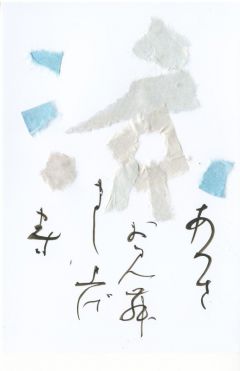 あつさ
お見舞
申し上げ
ます